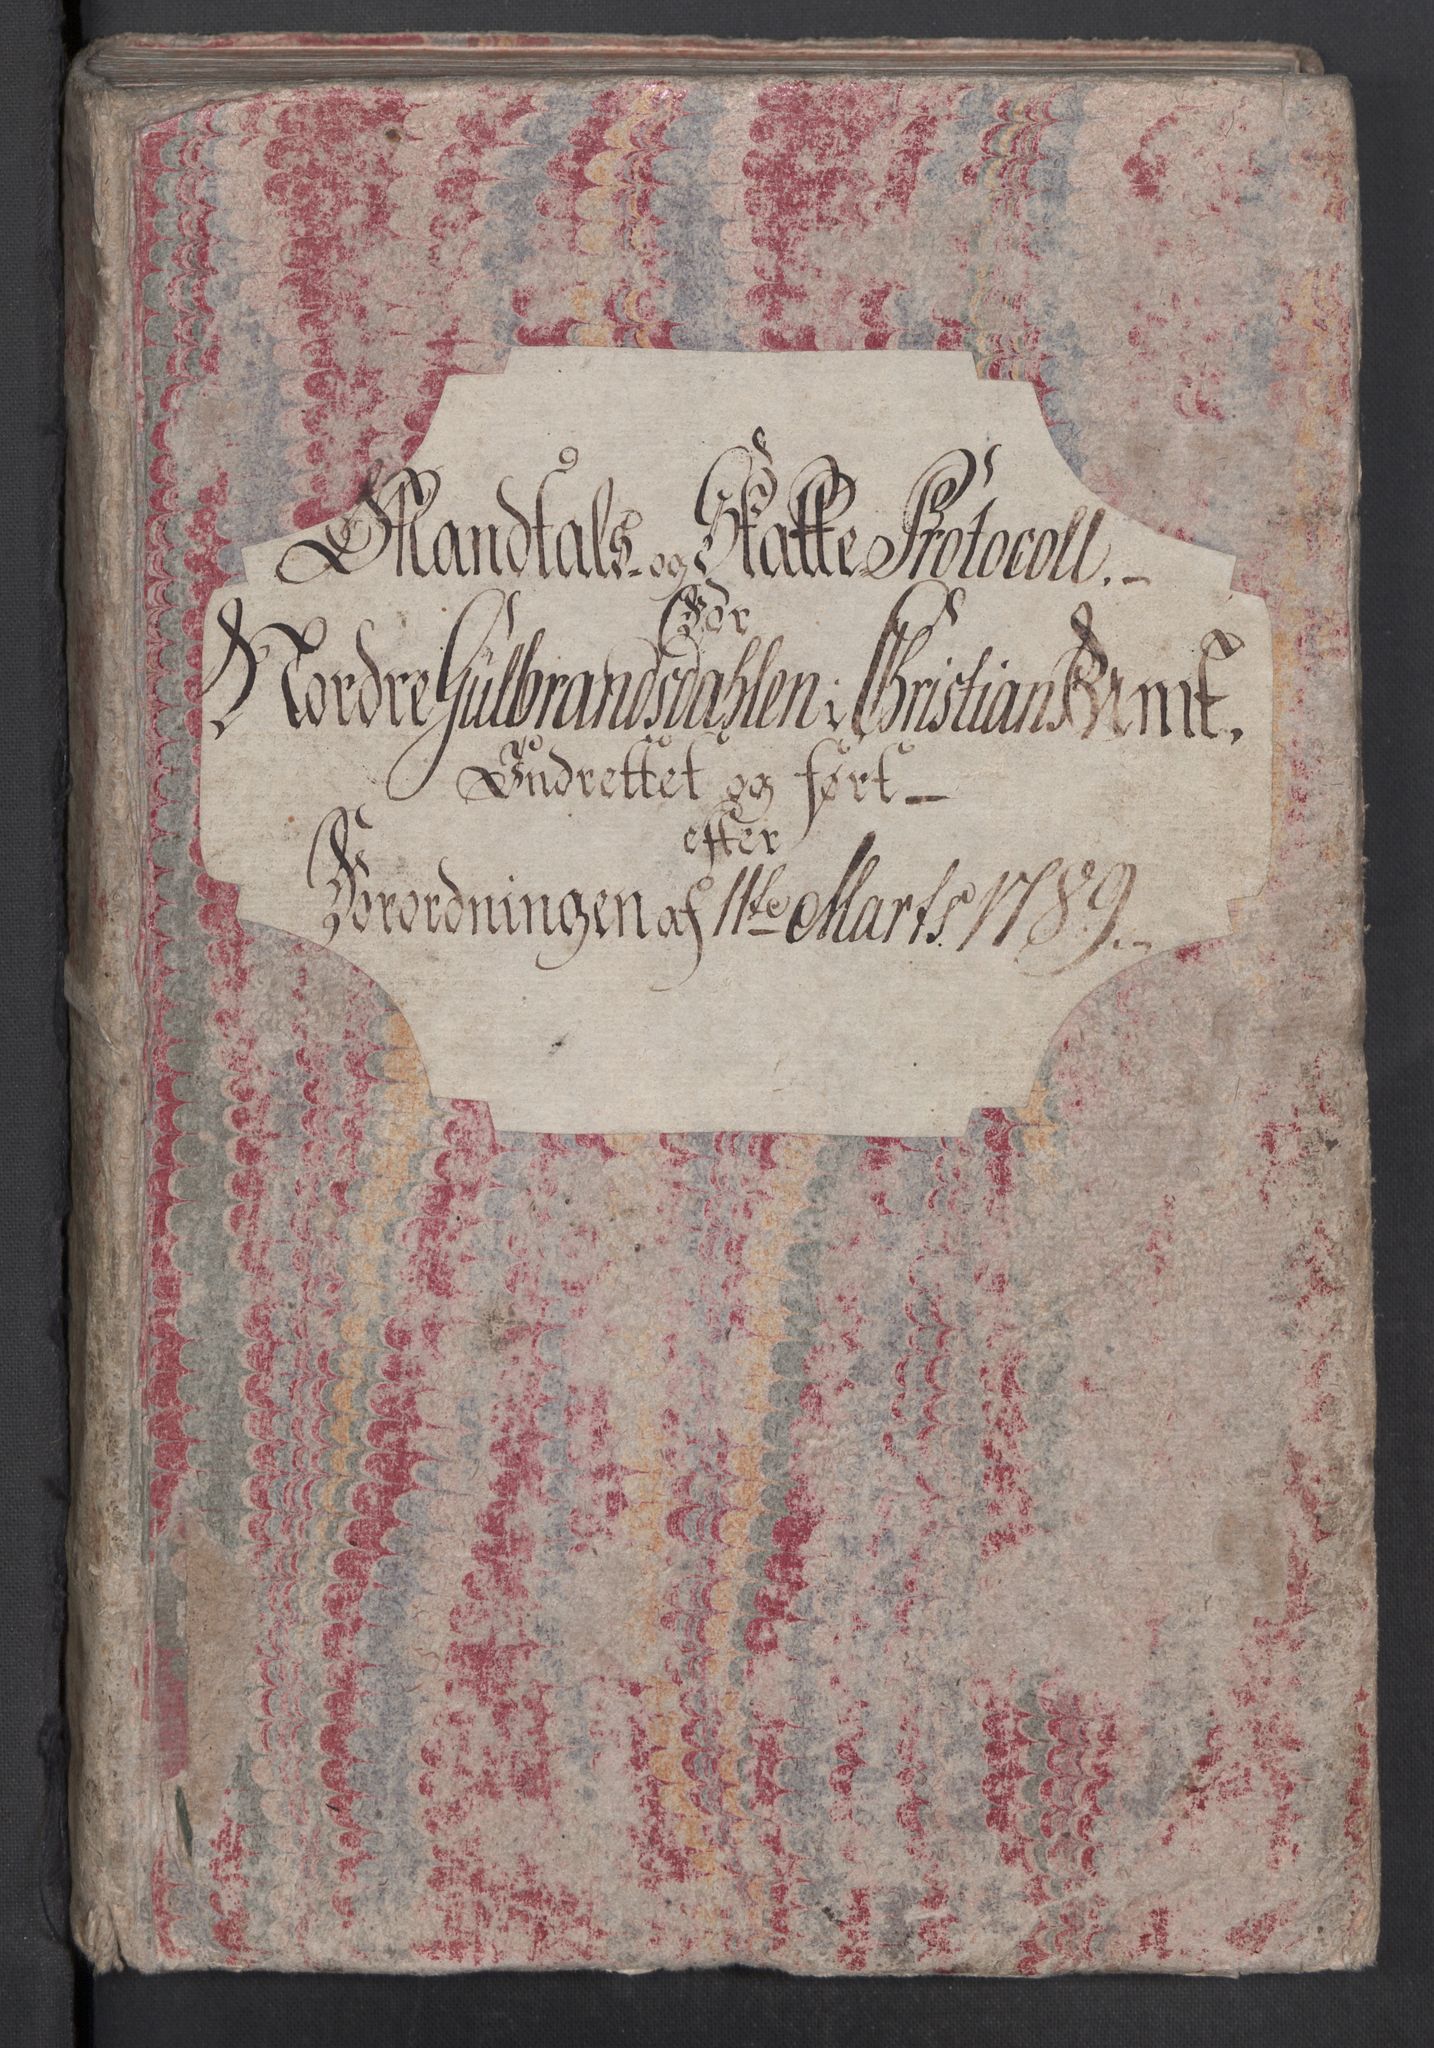 Mandtals- og Skatte-Protocoll.-
For
Nordre Gülbrandsdahlen i Christians Amt.
Indrettet og ført-
efter
Forordningen af 11te Marts 1789.-